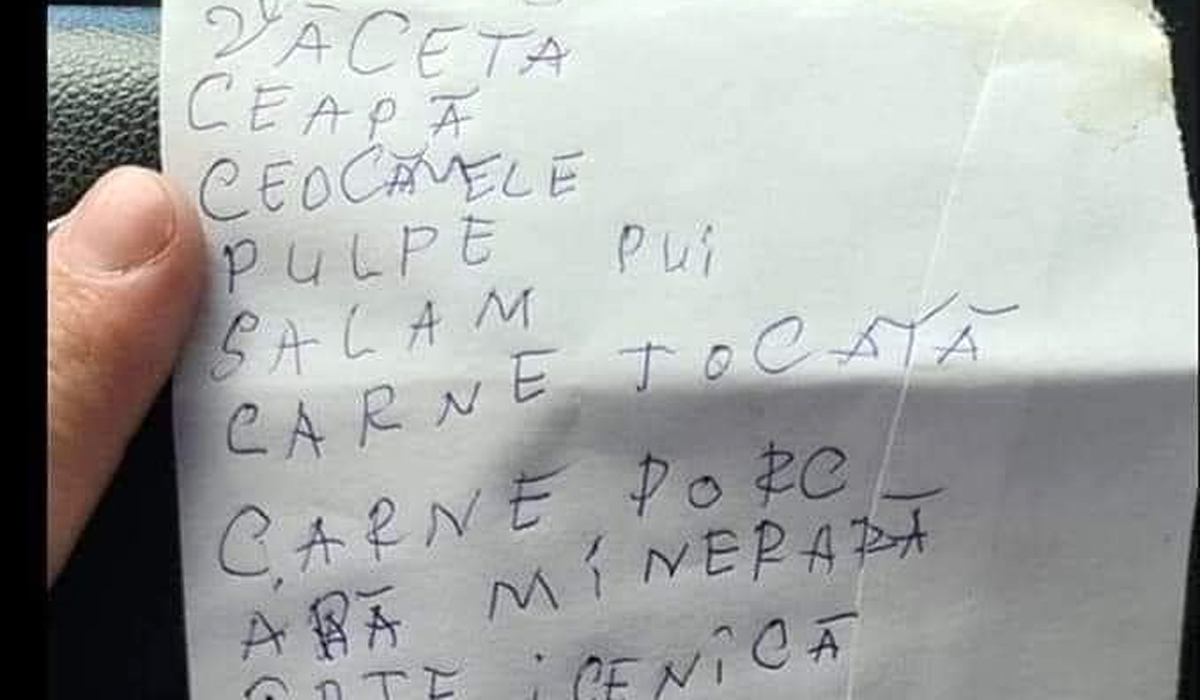 VĀCETĀ
CEAPĀ
CEOCĀNELE
PULPE PUi
SALAM
CARNE TOCATĀ
CARNE PORC
APĀ MiNERARĀ
iCENiCĀ